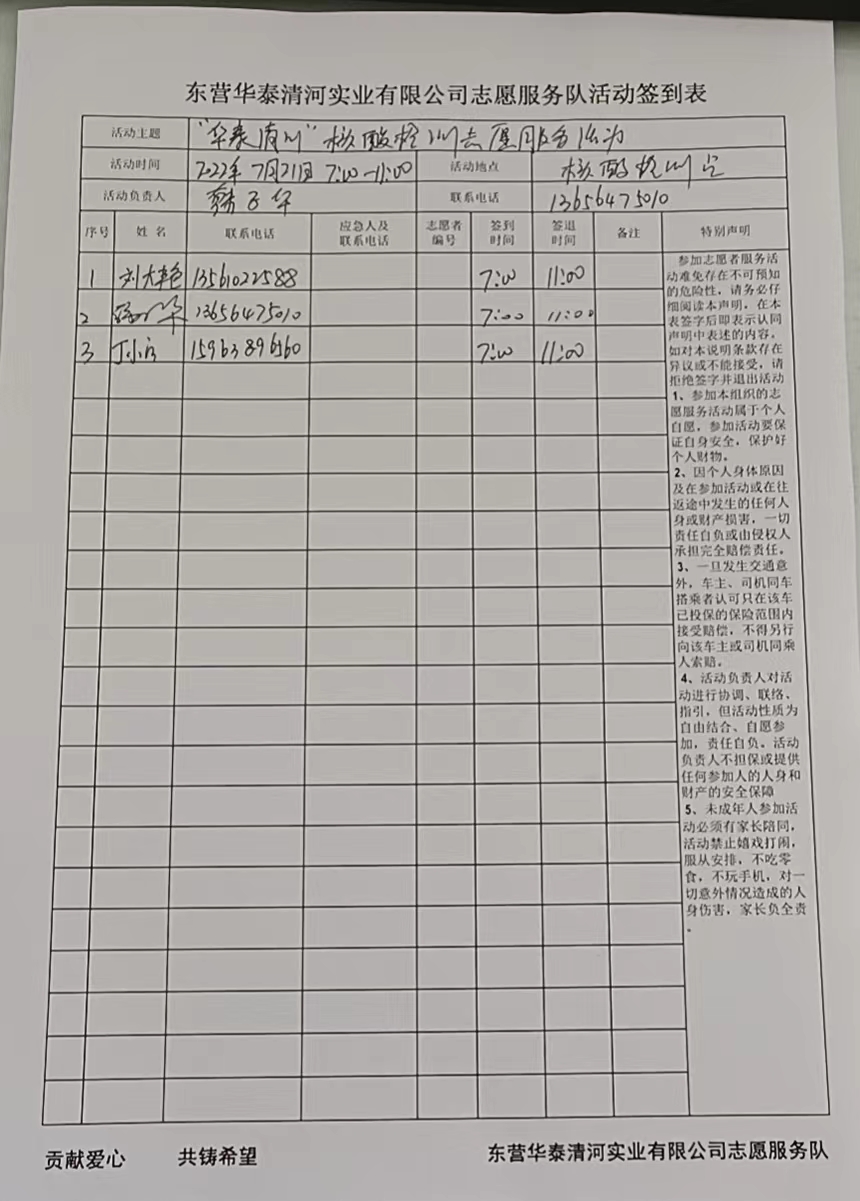 东营华泰清河实业有限公司志愿服务队活动签到表
活动主题 "华泰清河"核酸检测志愿服务活动
活动时间 2022年7月21日 7:00-11:00 活动地点 核酸检测点
活动负责人 联系电话 13656475010
序号 姓名 联系电话 应急人及联系电话 志愿者编号 签到时间 签退时间 备注 特别声明
1 刘大艳 13561022588 7:00 11:00
2 13656475010 7:00 11:00
3 15963896560 7:00 11:00
参加志愿者服务活
动难免存在不可预知
的危险性，请务必仔
细阅读本声明，在本
表签字后即表示认同
声明中表述的内容。
如对本说明条款存在
异议或不能接受，请
拒绝签字并退出活动
1、参加本组织的志
愿服务活动属于个人
自愿，参加活动要保
证自身安全，保护好
个人财物。
2、因个人身体原因
及在参加活动或在往
返途中发生的任何人
身或财产损害，一切
责任自负或由侵权人
承担完全赔偿责任。
3、一旦发生交通意
外，车主、司机同车
搭乘者认可只在该车
已投保的保险范围内
接受赔偿，不得另行
向该车主或司机同乘
人索赔。
4、活动负责人对活
动进行协调、联络、
指引，但活动性质为
自由结合、自愿参
加，责任自负。活动
负责人不担保或提供
任何参加人的人身和
财产的安全保障
5、未成年人参加活
动必须有家长陪同，
活动禁止嬉戏打闹，
服从安排，不吃零
食，不玩手机，对一
切意外情况造成的人
身伤害，家长负全责
。
贡献爱心 共铸希望 东营华泰清河实业有限公司志愿服务队